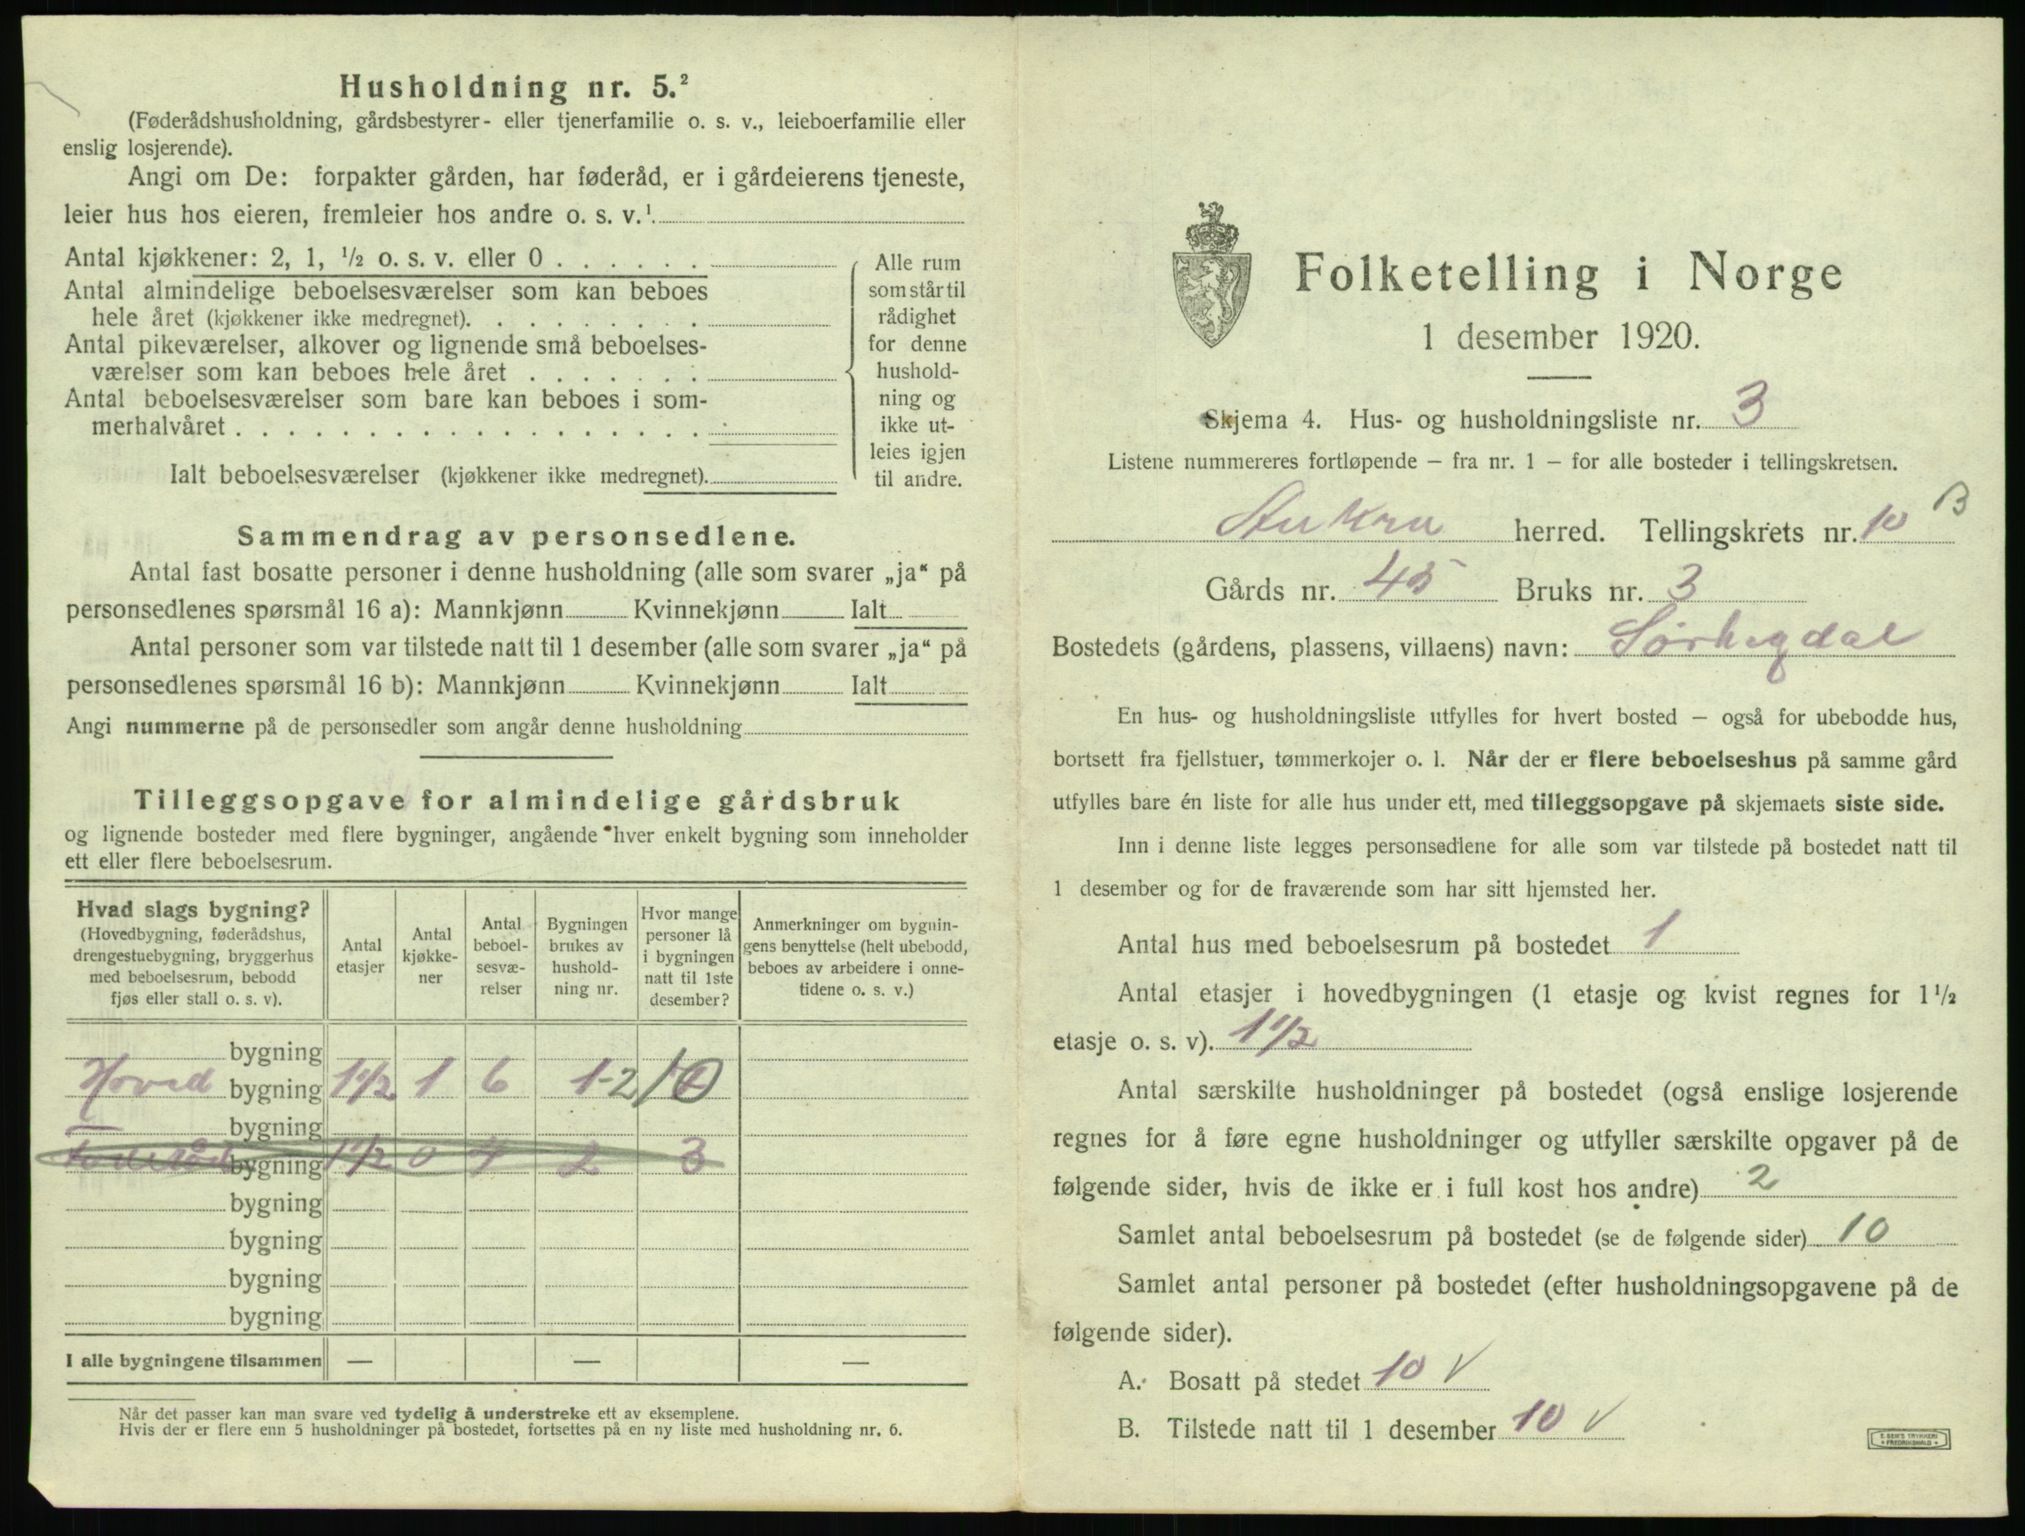 Husholdning nr. 5.²
(Føderådshusholdning, gårdsbestyrer- eller tjenerfamilie o. s. v., leieboerfamilie eller
enslig losjerende).
Angi om De: forpakter gården, har føderåd, er i gårdeierens tjeneste,
leier hus hos eieren, fremleier hos andre o. s. v.¹
Antal kjøkkener: 2, 1, ½ o. s. v. eller 0
Antal almindelige beboelsesværelser som kan beboes
hele året (kjøkkener ikke medregnet).
Antal pikeværelser, alkover og lignende små beboelses-
værelser som kan beboes hele året
Antal beboelsesværelser som bare kan beboes i som-
merhalvåret
Ialt beboelsesværelser (kjøkkener ikke medregnet).
Alle rum
som står til
rådighet
for denne
hushold-
ning og
ikke ut-
leies igjen
til andre.
Sammendrag av personsedlene.
Antal fast bosatte personer i denne husholdning (alle som svarer „ja“ på
personsedlenes spørsmål 16 a): Mannkjønn Kvinnekjønn Ialt
Antal personer som var tilstede natt til 1 desember (alle som svarer „ja“ på
personsedlenes spørsmål 16 b): Mannkjønn Kvinnekjønn Ialt
Angi nummerne på de personsedler som angår denne husholdning
Tilleggsopgave for almindelige gårdsbruk
og lignende bosteder med flere bygninger, angående hver enkelt bygning som inneholder
ett eller flere beboelsesrum.
Hvad slags bygning?
(Hovedbygning, føderådshus,
drengestuebygning, bryggerhus
med beboelsesrum, bebodd
fjøs eller stall o. s. v).
Antal
etasjer
Antal
kjøkke-
ner
Antal
beboel-
sesvæ-
relser
Bygningen
brukes av
hushold-
ning nr.
Hvor mange
personer lå
i bygningen
natt til 1ste
desember?
Anmerkninger om bygnin-
gens benyttelse (helt ubebodd,
beboes av arbeidere i onne-
tidene o. s. v.)
bygning
Hoved bygning 1½ 1 6 1-2 10
bygning
bygning 1½ 0 4 2 3
bygning
bygning
bygning
bygning
I alle bygningene tilsammen — — —
Når det passer kan man svare ved tydelig å understreke ett av eksemplene.
Hvis der er flere enn 5 husholdninger på bostedet, fortsettes på en ny liste med husholdning nr. 6.
Folketelling i Norge
1 desember 1920.
Skjema 4. Hus- og husholdningsliste nr. 3
Listene nummereres fortløpende – fra nr. 1 – for alle bosteder i tellingskretsen.
herred. Tellingskrets nr. 10 B
Gårds nr. 45 Bruks nr. 3
Bostedets (gårdens, plassens, villaens) navn: Sørhegdal
En hus- og husholdningsliste utfylles for hvert bosted – også for ubebodde hus,
bortsett fra fjellstuer, tømmerkojer o. l. Når der er flere beboelseshus på samme gård
utfylles bare én liste for alle hus under ett, med tilleggsopgave på skjemaets siste side.
Inn i denne liste legges personsedlene for alle som var tilstede på bostedet natt til
1 desember og for de fraværende som har sitt hjemsted her.
Antal hus med beboelsesrum på bostedet 1
Antal etasjer i hovedbygningen (1 etasje og kvist regnes for 1½
etasje o. s. v). 1½
Antal særskilte husholdninger på bostedet (også enslige losjerende
regnes for å føre egne husholdninger og utfyller særskilte opgaver på de
følgende sider, hvis de ikke er i full kost hos andre) 2
Samlet antal beboelsesrum på bostedet (se de følgende sider) 10
Samlet antal personer på bostedet (efter husholdningsopgavene på de
følgende sider).
A. Bosatt på stedet 10 √
B. Tilstede natt til 1 desember 10 √
FREDRIKSHALD